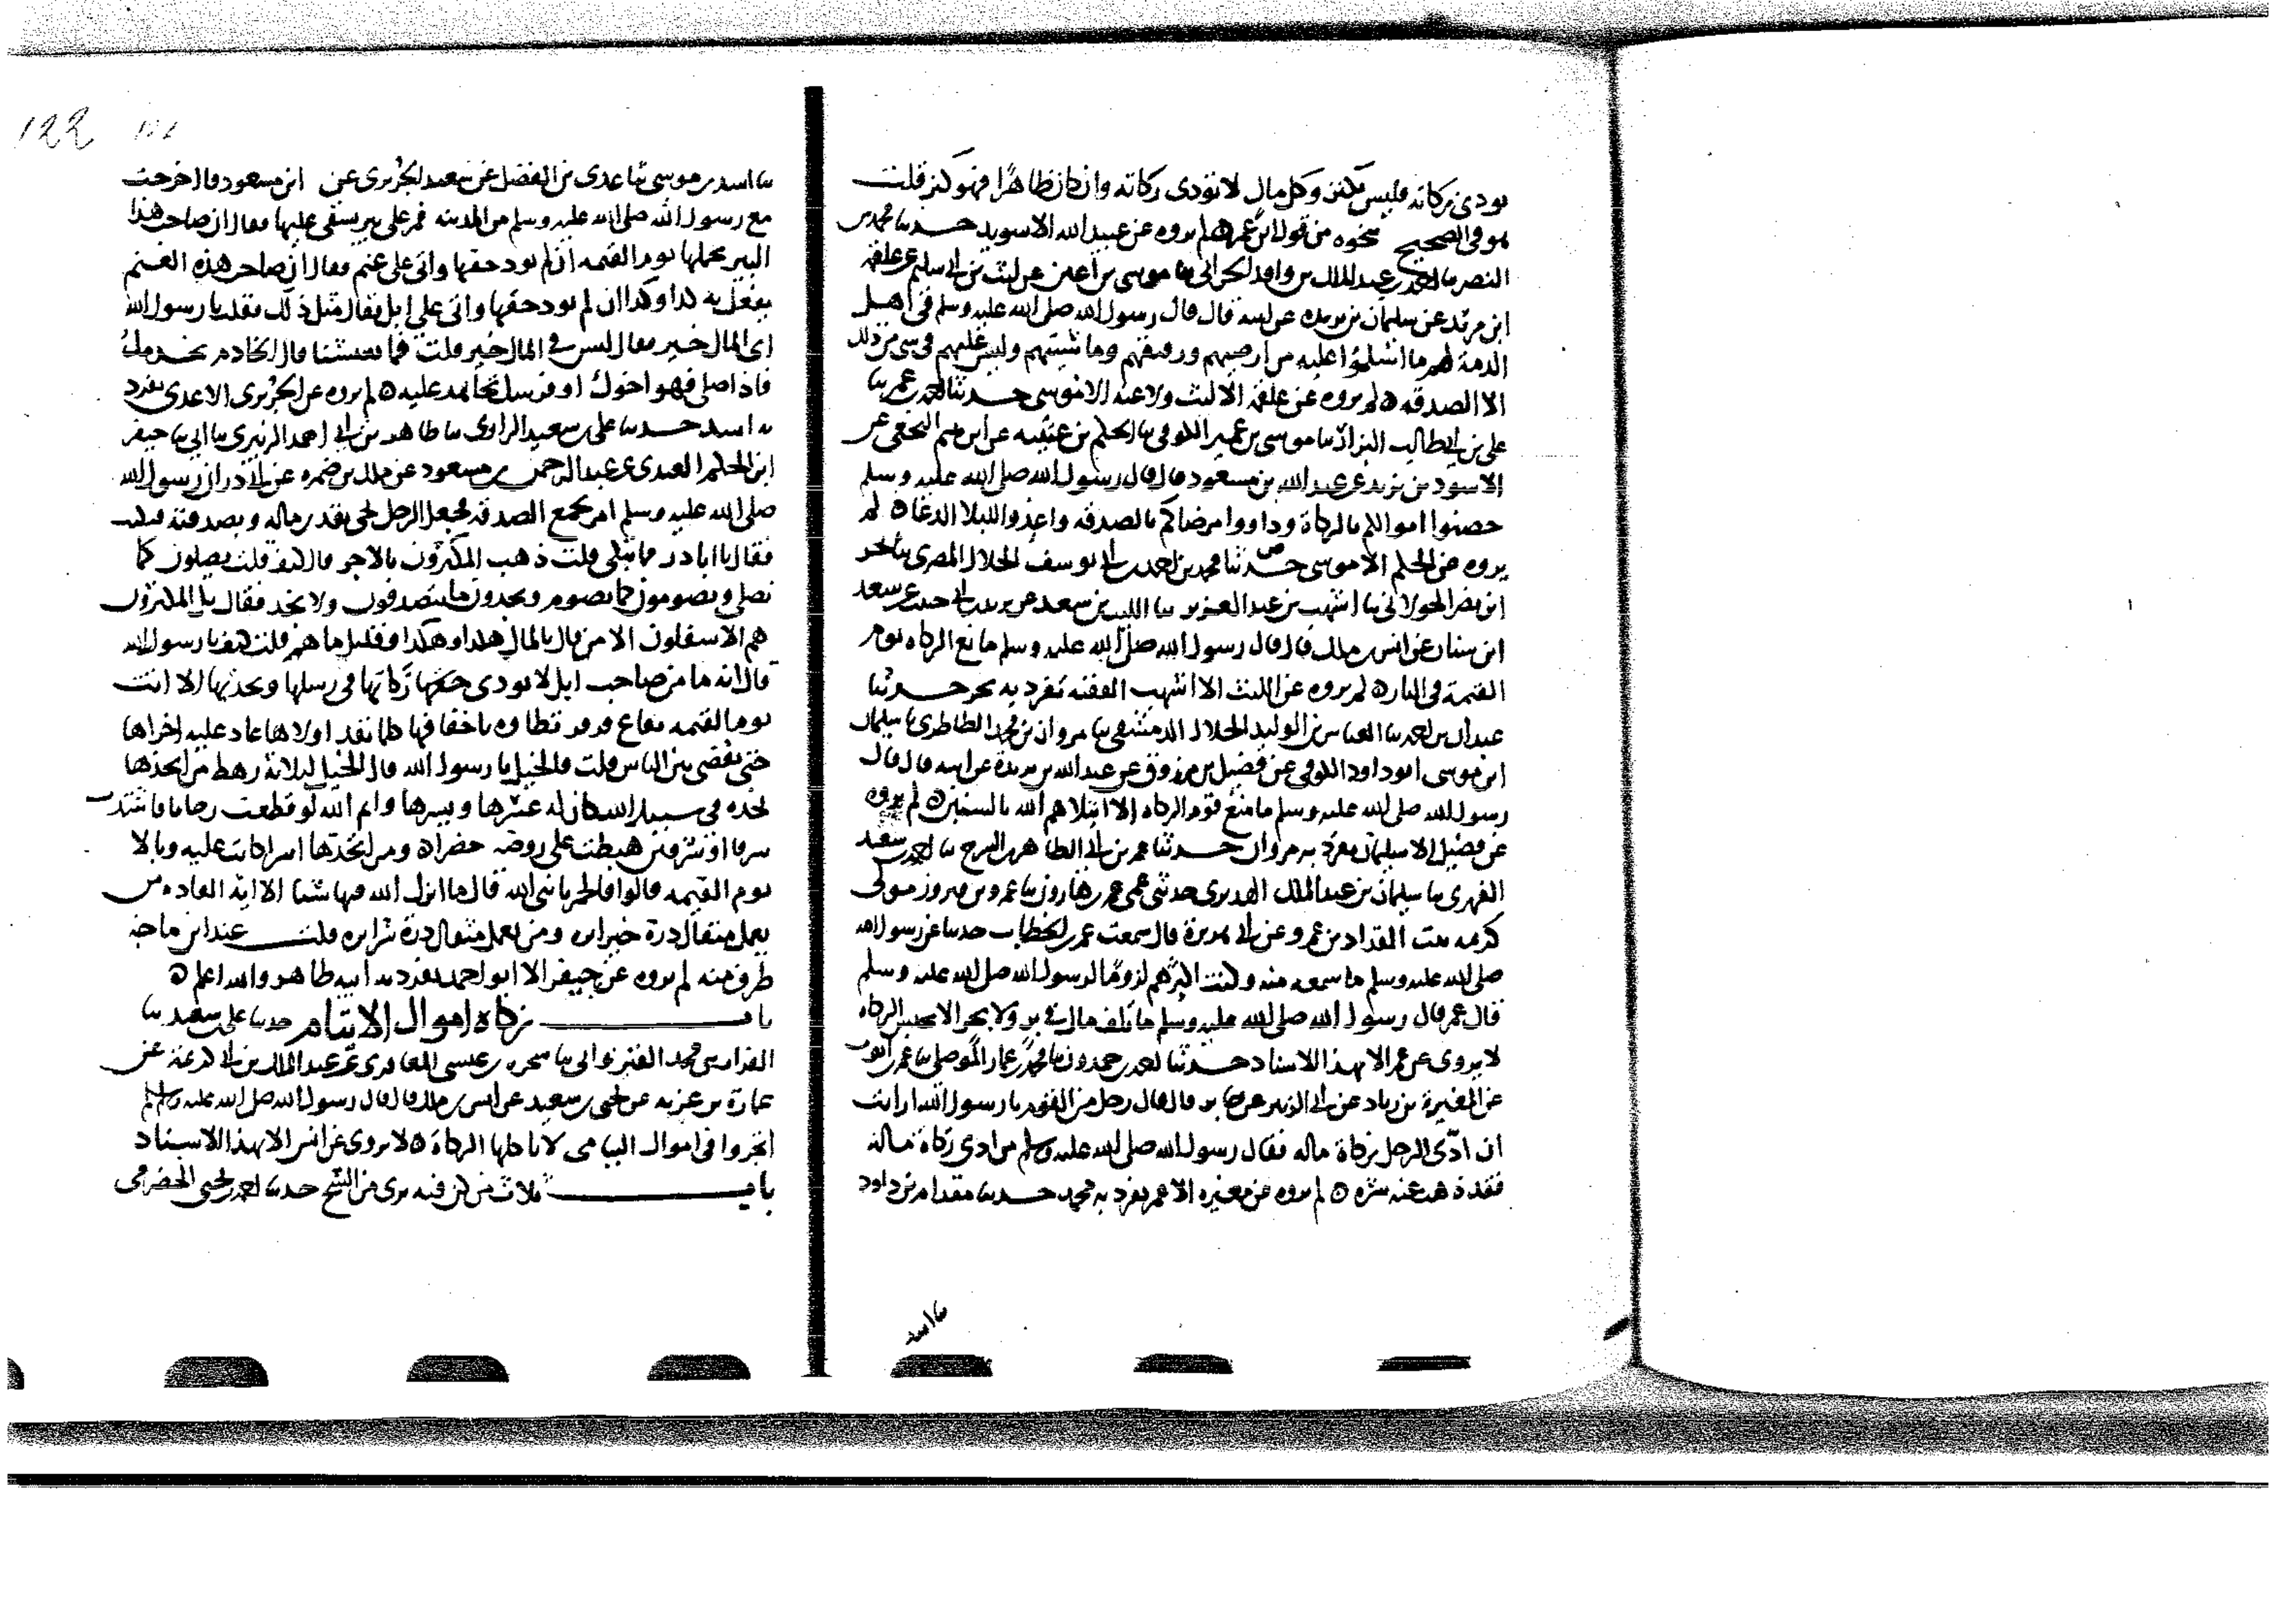 يودى زكاته فليس بكنز وكل مال لا تودى زكاته وان كان ظاهرا فهو كنز قلت
هو في الصحيح بنحوه من قول ابن عمر لم يروه عن عبيد الله الا سويد حدثنا محمد بن
النضر ثنا احمد بن عبد الملك بن واقد الحراني ثنا موسى بن اعين عن ليث بن ابي سليم عن علقمة
ابن مرثد عن سليمان بن بريدة عن ابيه قال قال رسول الله صلى الله عليه وسلم في اهل
الذمة لهم ما اسلموا عليه من ارضيهم ورقيقهم وماشيتهم وليس عليهم في شى من ذلك
الا الصدقه ه لم يروه عن علقمة الا ليث ولا عنه الا موسى حدثنا احمد بن عمر ثنا
علي بن ابي طالب البزاز ثنا موسى بن عمير الكوفي ثنا الحكم بن عتيبه عن ابرهيم النخعي عن
الاسود بن يزيد عن عبد الله بن مسعود قال قال رسول الله صلى الله عليه وسلم
حصنوا اموالكم بالزكاة وداووا مرضاكم بالصدقه واعدوا للبلا الدعا ه لم
يروه عن الحكم الا موسى حدثنا محمد بن احمد بن ابي يوسف الخلال المصري ثنا بحر
ابن نصر الخولاني ثنا اشهب بن عبد العزيز ثنا الليث بن سعد عن يزيد بن ابي حبيب عن سعد
ابن سنان عن انس بن ملك قال قال رسول الله صلى الله عليه وسلم مانع الزكاة يوم
القيمة في النار ه لم يروه عن الليث الا اشهب الفقيه تفرد به بحر حدثنا
عبدان بن احمد ثنا العباس بن الوليد الخلال الدمشقي ثنا مروان بن محمد الطاطري ثنا سليمان
ابن موسى ابو داود الكوفي عن فضيل بن مرزوق عن عبد الله بن بريدة عن ابيه قال قال
رسول الله صلى الله عليه وسلم ما منع قوم الزكاه الا ابتلاهم الله بالسنين ه لم يروه
عن فضيل الا سليمان تفرد به مروان حدثنا عمر بن ابي الطاهر بن السرح ثنا احمد بن سعيد
الفهري ثنا سليمان بن عبد الملك حدثني عمي عمر بن هارون ثنا عمرو بن فيروز مولى
كريمه بنت المقداد بن عمرو عن ابي هريرة قال سمعت عمر بن الخطاب حدثنا عن رسول الله
صلى الله عليه وسلم ما سمعه منه وكنت اكثرهم لزوما لرسول الله صلى الله عليه وسلم
قال عمر قال رسول الله صلى الله عليه وسلم ما تلف مال في بر ولا بحر الا بحبس الزكاه
لا يروى عن عمر الا بهذا الاسناد حدثنا احمد بن حمدون ثنا محمد بن عمار الموصلي ثنا عمر بن ايوب
عن المغيرة بن زياد عن ابي الزبير عن جابر قال قال رجل من القوم يا رسول الله ارايت
ان ادّى الرجل زكاة ماله فقال رسول الله صلى الله عليه وسلم من ادى زكاة ماله
فقد ذهب عنه شره ه لم يروه عن مغيره الا عمر تفرد به محمد حدثنا مقدام بن داود
ثنا اسد
122
ثنا اسد بن موسى ثنا عدى بن الفضل عن سعيد الجريرى عن ابن مسعود قال خرجت
مع رسول الله صلى الله عليه وسلم من المدينه فمر على بير يسقى عليها فقال ان صاحب هذا
البير يحملها يوم القيمه ان لم يود حقها واتى على غنم فقال ان صاحب هذه الغنم
يفعل به كذا وكذا ان لم يود حقها واتى على ابل فقال مثل ذلك فقلت يا رسول الله
اى المال خير فقال ليس في المال خير قلت فما نعيشنا قال الخادم يخدمك
فاذا صلى فهو اخوك او فرس تجاهد عليه ه لم يروه عن الجريرى الا عدى تفرد
به اسد حدثنا على بن سعيد الرازى ثنا طاهر بن ابي احمد الزبيرى ثنا ابي ثنا جيفر
ابن الحكم العبدى عن عبد الرحمن بن مسعود عن ملك بن ضمره عن ابي ذر ان رسول الله
صلى الله عليه وسلم امر بجمع الصدقه فجعل الرجل يجي بقدر ماله وبصدقته
فقال يا ابا ذر قلت ذهب المكثرون بالاجر قال كيف قلت يصلون كما
نصلى ويصومون كما نصوم ويجدون ما يتصدقون ولا نجد فقال بل المكثرون
هم الاسفلون الا من قال بالمال هكذا وهكذا وقليل ما هم قلت كيف يا رسول الله
قال انه ما من صاحب ابل لا يودى حقها زكاتها في رسلها ونجدتها الا اتت
يوم القيمه بقاع قرقر تطاوه باخفافها كلما نفد اولاها عاد عليه اخراها
حتى يقضى بين الناس قلت فالخيل يا رسول الله قال الخيل لثلاثة رهط من اتخذها
لعده في سبيل الله كان له عسرها ويسرها وايم الله لو قطعت رحاما فاشتدت
شرفا او شرفين هبطت على روضه خضرا ه ومن اتخذها اشرا كانت عليه وبالا
يوم القيمه قالوا فالحمر يا نبي الله قال ما انزل الله فيها شيا الا الايه الفاده من
يعمل مثقال ذرة خيرا يره ومن يعمل مثقال ذرة شرا يره قلت عند ابن ماجه
طرف منه لم يروه عن جيفر الا ابو احمد تفرد به ابنه طاهر والله اعلم ه
باب زكاه اموال الايتام حدثنا على بن سعيد ثنا
الفرات بن محمد القيرواني ثنا شجره بن عيسى المعافرى عن عبد الملك بن ابي كريمه عن
عمارة بن غزيه عن يحيى بن سعيد عن انس بن ملك قال قال رسول الله صلى الله عليه وسلم
اتجروا في اموال اليتامى لا تاكلها الزكاة ه لا يروى عن انس الا بهذا الاسناد
باب ثلاث من كن فيه برى من الشح حدثنا احمد بن يحيى الحضرمي